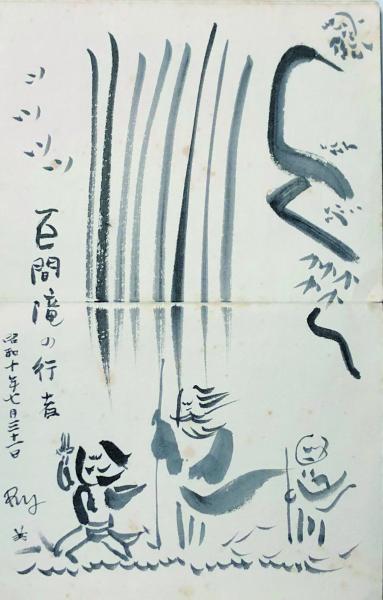 百間滝の行者
昭和十年七月三十一日